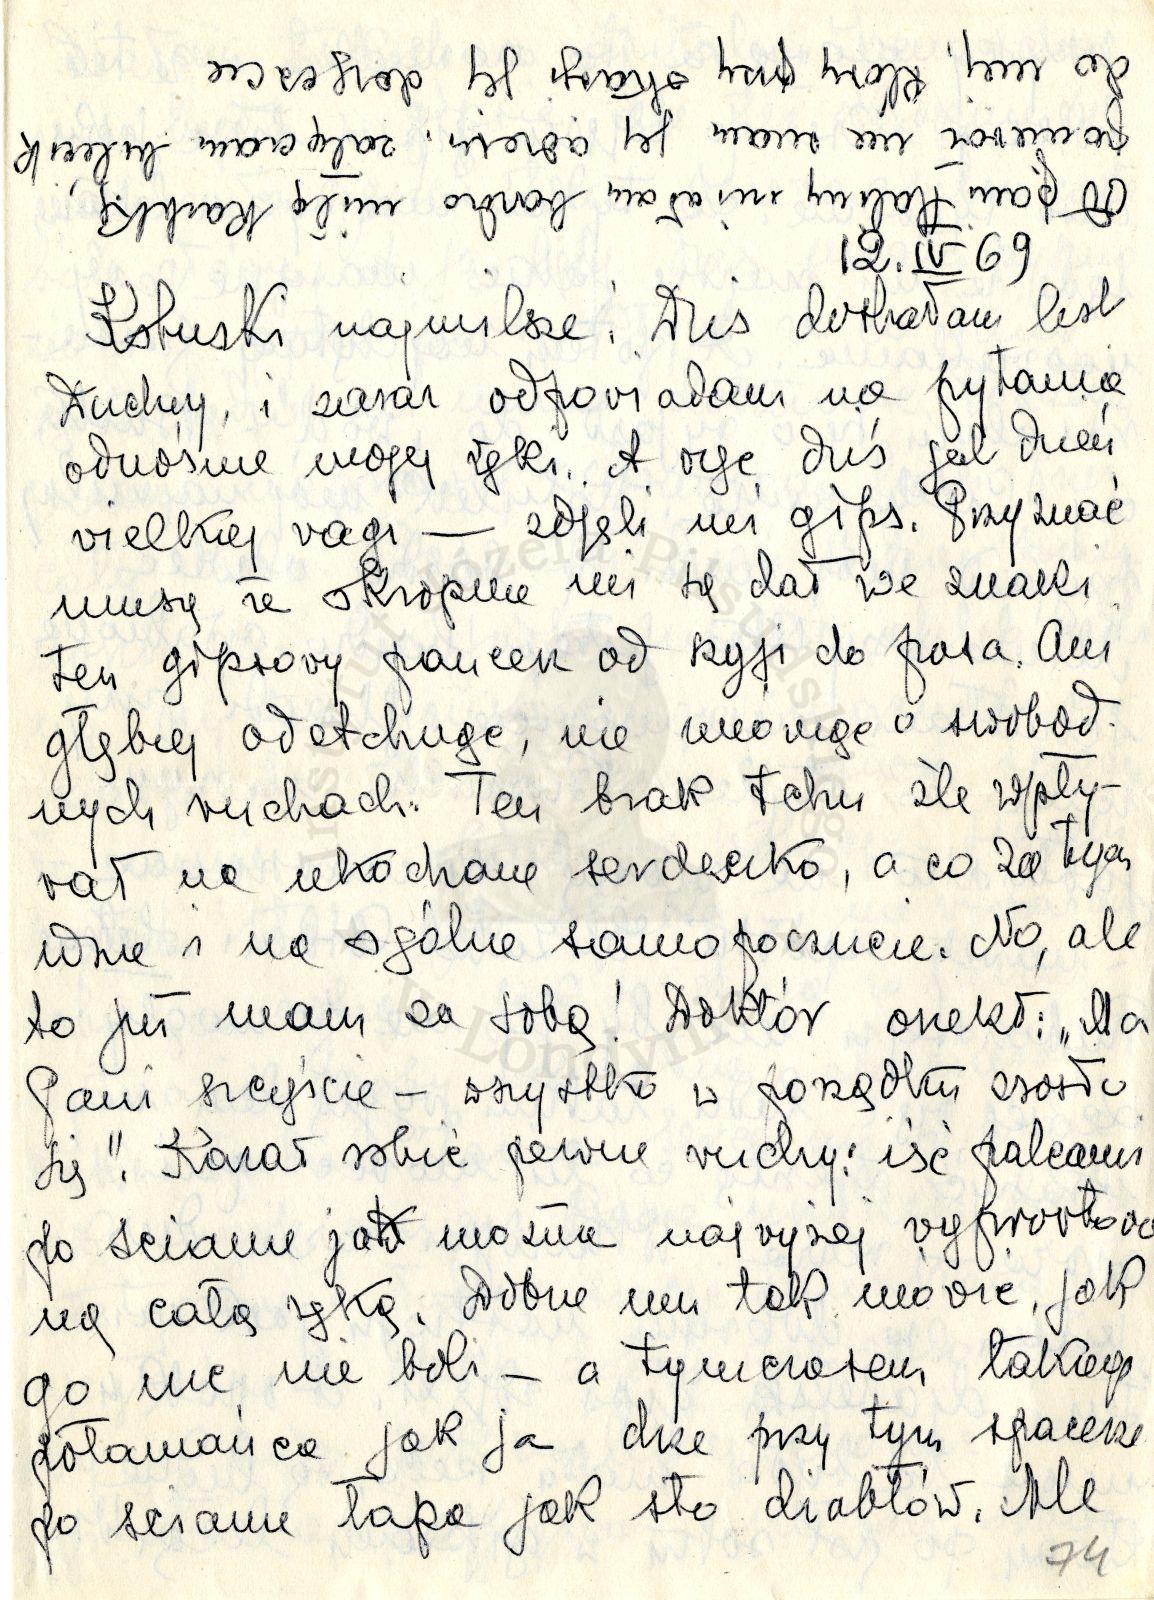 Od pani Haliny miałam bardzo miłą kartkę,
ponieważ nie znam jej adresu, załączam bilecik
do niej, który przy okazji jej doręczcie
12.VI 69
Kobuski najmilsze! Dziś dostałam list
Duchny, i zaraz odpowiadam na pytania
odnośnie mojej ręki. A więc dziś jest dzień
wielkiej vagi — zdjęli mi gips. Przyznać
muszę że okropnie mi się dał we znaki
ten gipsowy pancerz od szyji do pasa. Ani
głębiej odetchnąć, nie mówiąc o swobod-
nych ruchach. Ten brak tchu źle wpły-
wał na ukochane serdeszko, a co za tym
idzie i na ogólne samopoczucie. No, ale
to już mam za sobą! Doktór orzekł: „Ma
Pani szczęście — wszystko w porządku zrosło
się". Kazał robić pewne ruchy: iść palcami
po ścianie jak można najwyżej wyprostowa
ną całą ręką. Dobrze mu tak mówić, jak
go nic nie boli — a tymczasem takiego
połamańca jak ja drze przy tym spacerze
po ścianie łapa jak sto diabłów. Ale
74
Instytut Józefa Piłsudskiego
w Londynie